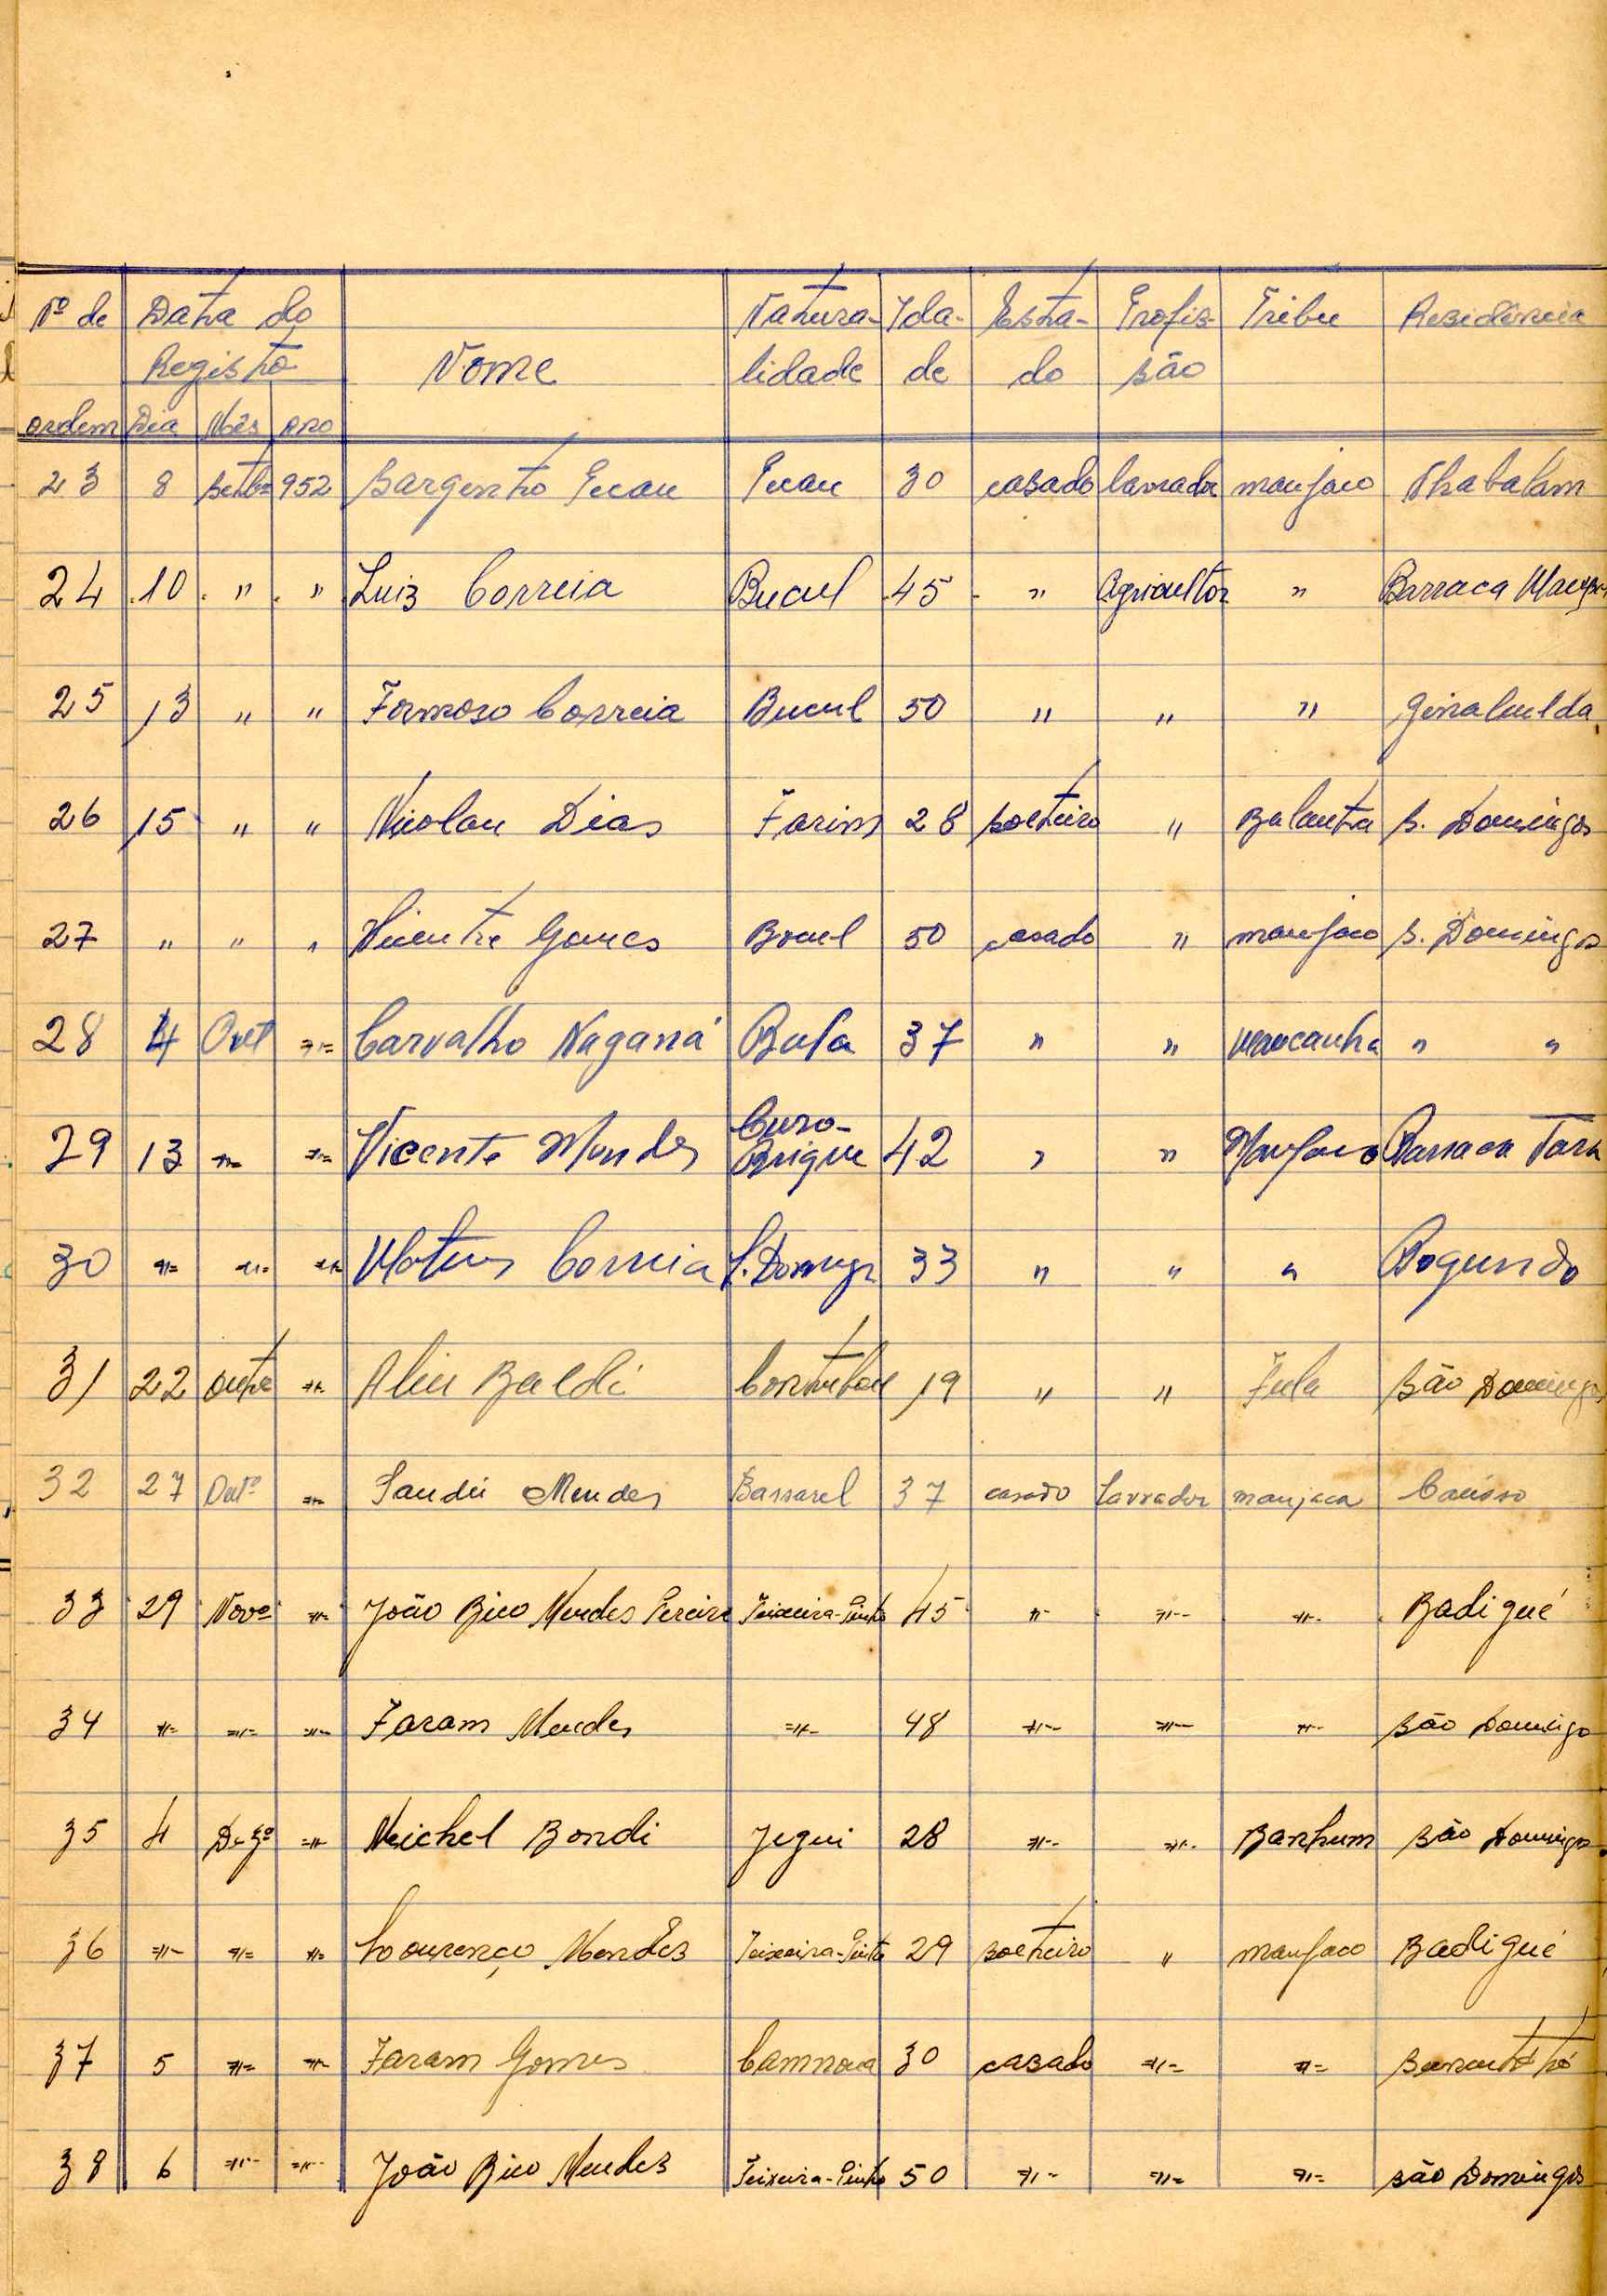 Nº de Data do Natura- Ida- Esta- Profis- Tribu Residência
Registo Nome lidade de do são
ordem Dia Mês ano
23 8 setbº 952 Sargento Pecau Pecau 30 casado lavrador manjaco
24 10 " " Luiz Correia Bucul 45 " Agricultor " Barraca
25 13 " " Formoso Correia Bucul 50 " " "
26 15 " " Nicolau Dias Farim 28 solteiro " Balanta S. Domingos
27 " " " Vicente Gomes Bocul 50 casado " manjaco S. Domingos
28 4 Out -"- Carvalho Naganá Bula 37 " " mancanha " "
29 13 -"- -"- Vicente Mendes Curo-
Brique 42 " " Manjaco Barraca
30 -"- -"- -"- Mateus Correia S. Domingos 33 " " " Bogundo
31 22 outº -"- Aliu Baldi Contubou 19 " " Fula São Domingos
32 27 Outº -"- Mendes Bassarel 37 casado Lavrador manjaca
33 29 Novº -"- João Bico Mendes Pereira Teixeira-Pinto 45 -"- -"- -"- Badigué
34 -"- -"- -"- Faram Mendes -"- 48 -"- -"- -"- São Domingo
35 4 Dezº -"- Michel Bondi Jegui 28 -"- -"- Banhum São Domingos
36 -"- -"- -"- Lourenço Mendes Teixeira-Pinto 29 solteiro " manjaco Badigué
37 5 -"- -"- Faram Gomes Camnova 30 casado -"- -"-
38 6 -"- -"- João Bico Mendes Teixeira-Pinto 50 -"- -"- -"- São Domingos